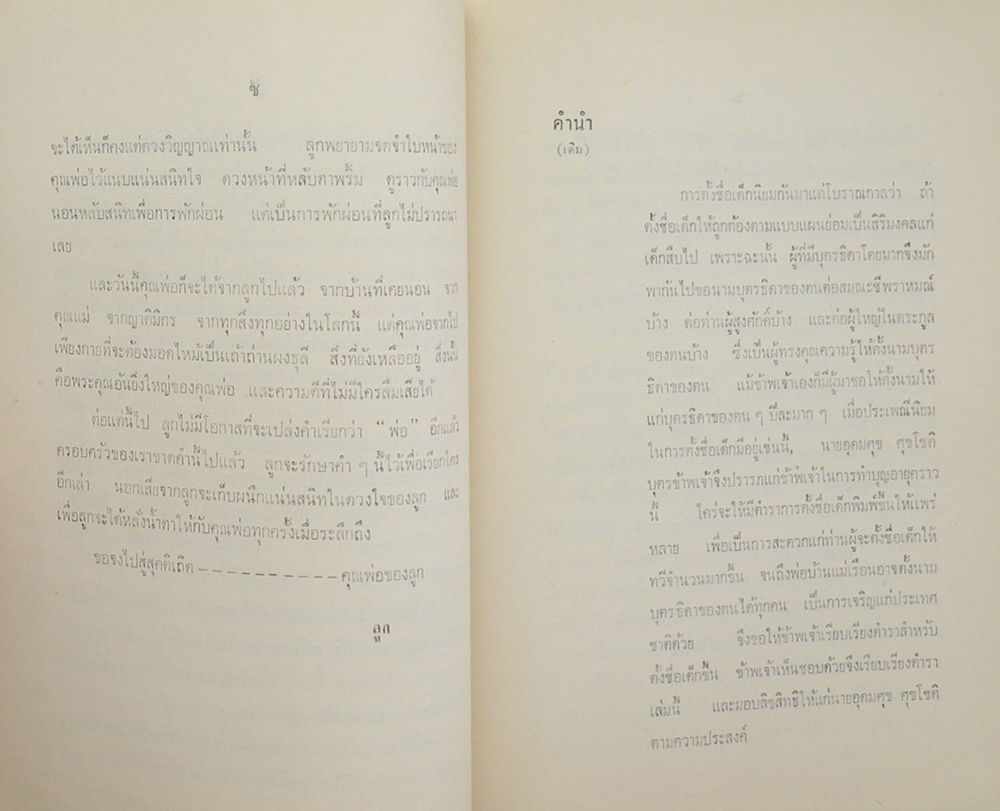 ช
จะได้เห็นก็คงแต่ดวงวิญญาณเท่านั้น ลูกพยายามจดจำใบหน้าของ
คุณพ่อไว้แนบแน่นสนิทใจ ดวงหน้าที่หลับตาพริ้ม ดูราวกับคุณพ่อ
นอนหลับสนิทเพื่อการพักผ่อน แต่เป็นการพักผ่อนที่ลูกไม่ปรารถนา
เลย
และวันนี้คุณพ่อก็จะได้จากลูกไปแล้ว จากบ้านที่เคยนอน จาก
คุณแม่ จากญาติมิตร จากทุกสิ่งทุกอย่างในโลกนี้ แต่คุณพ่อจากไป
เพียงกายที่จะต้องมอดไหม้เป็นเถ้าถ่านผงธุลี สิ่งที่ยังเหลืออยู่ สิ่งนั้น
คือพระคุณอันยิ่งใหญ่ของคุณพ่อ และความดีที่ไม่มีใครลืมเสียได้
ต่อแต่นี้ไป ลูกไม่มีโอกาสที่จะเปล่งคำเรียกว่า “พ่อ” อีกแล้ว
ครอบครัวของเราขาดคำนี้ไปแล้ว ลูกจะรักษาคำ ๆ นี้ไว้เพื่อเรียกใคร
อีกเล่า นอกเสียจากลูกจะเก็บผนึกแน่นสนิทในดวงใจของลูก และ
เพื่อลูกจะได้หลั่งน้ำตาให้กับคุณพ่อทุกครั้งเมื่อระลึกถึง
ขอจงไปสู่สุคติเถิด – – – – – – – – – – คุณพ่อของลูก
ลูก
คำนำ
(เดิม)
การตั้งชื่อเด็กนิยมกันมาแต่โบราณกาลว่า ถ้า
ตั้งชื่อเด็กให้ถูกต้องตามแบบแผนย่อมเป็นสิริมงคลแก่
เด็กสืบไป เพราะฉะนั้น ผู้ที่มีบุตรธิดาโดยมากจึงมัก
พากันไปขอนามบุตรธิดาของตนต่อสมณะชีพราหมณ์
บ้าง ต่อท่านผู้สูงศักดิ์บ้าง และต่อผู้ใหญ่ในตระกูล
ของตนบ้าง ซึ่งเป็นผู้ทรงคุณความรู้ให้ตั้งนามบุตร
ธิดาของตน แม้ข้าพเจ้าเองก็มีผู้มาขอให้ตั้งนามให้
แก่บุตรธิดาของตน ๆ ปีละมาก ๆ เมื่อประเพณีนิยม
ในการตั้งชื่อเด็กมีอยู่เช่นนี้, นายอุดมศุข ศุขโชติ
บุตรข้าพเจ้าจึงปรารภแก่ข้าพเจ้าในการทำบุญอายุคราว
นี้ ใคร่จะให้มีตำราการตั้งชื่อเด็กพิมพ์ขึ้นให้แพร่
หลาย เพื่อเป็นการสะดวกแก่ท่านผู้จะตั้งชื่อเด็กให้
ทวีจำนวนมากขึ้น จนถึงพ่อบ้านแม่เรือนอาจตั้งนาม
บุตรธิดาของตนได้ทุกคน เป็นการเจริญแก่ประเทศ
ชาติด้วย จึงขอให้ข้าพเจ้าเรียบเรียงตำราสำหรับ
ตั้งชื่อเด็กขึ้น ข้าพเจ้าเห็นชอบด้วยจึงเรียบเรียงตำรา
เล่มนี้ และมอบลิขสิทธิให้แก่นายอุดมศุข ศุขโชติ
ตามความประสงค์